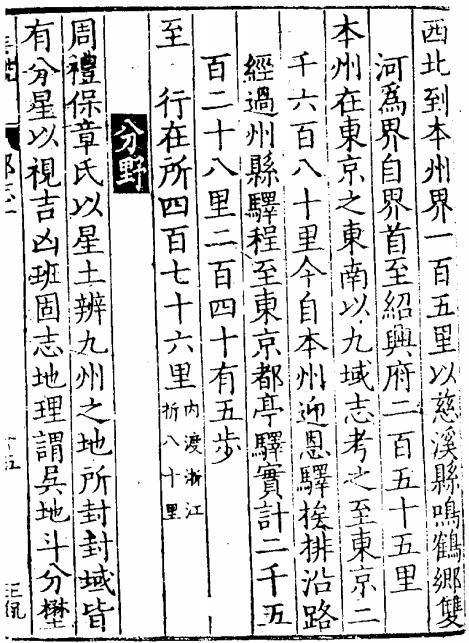 西北到本州界一百五里以慈溪縣鳴鶴鄉雙
河爲界自界首至紹興府二百五十五里
本州在東京之東南以九域志考之至東京二
千六百八十里今自本州迎恩驛挨排沿路
經過州縣驛程至東京都亭驛實計二千五
百二十八里二百四十有五步
至　行在所四百七十六里内渡浙江折八十里
分野
周禮保章氏以星土辨九州之地所封封域皆
有分星以視吉凶班固志地理謂吳地斗分壄